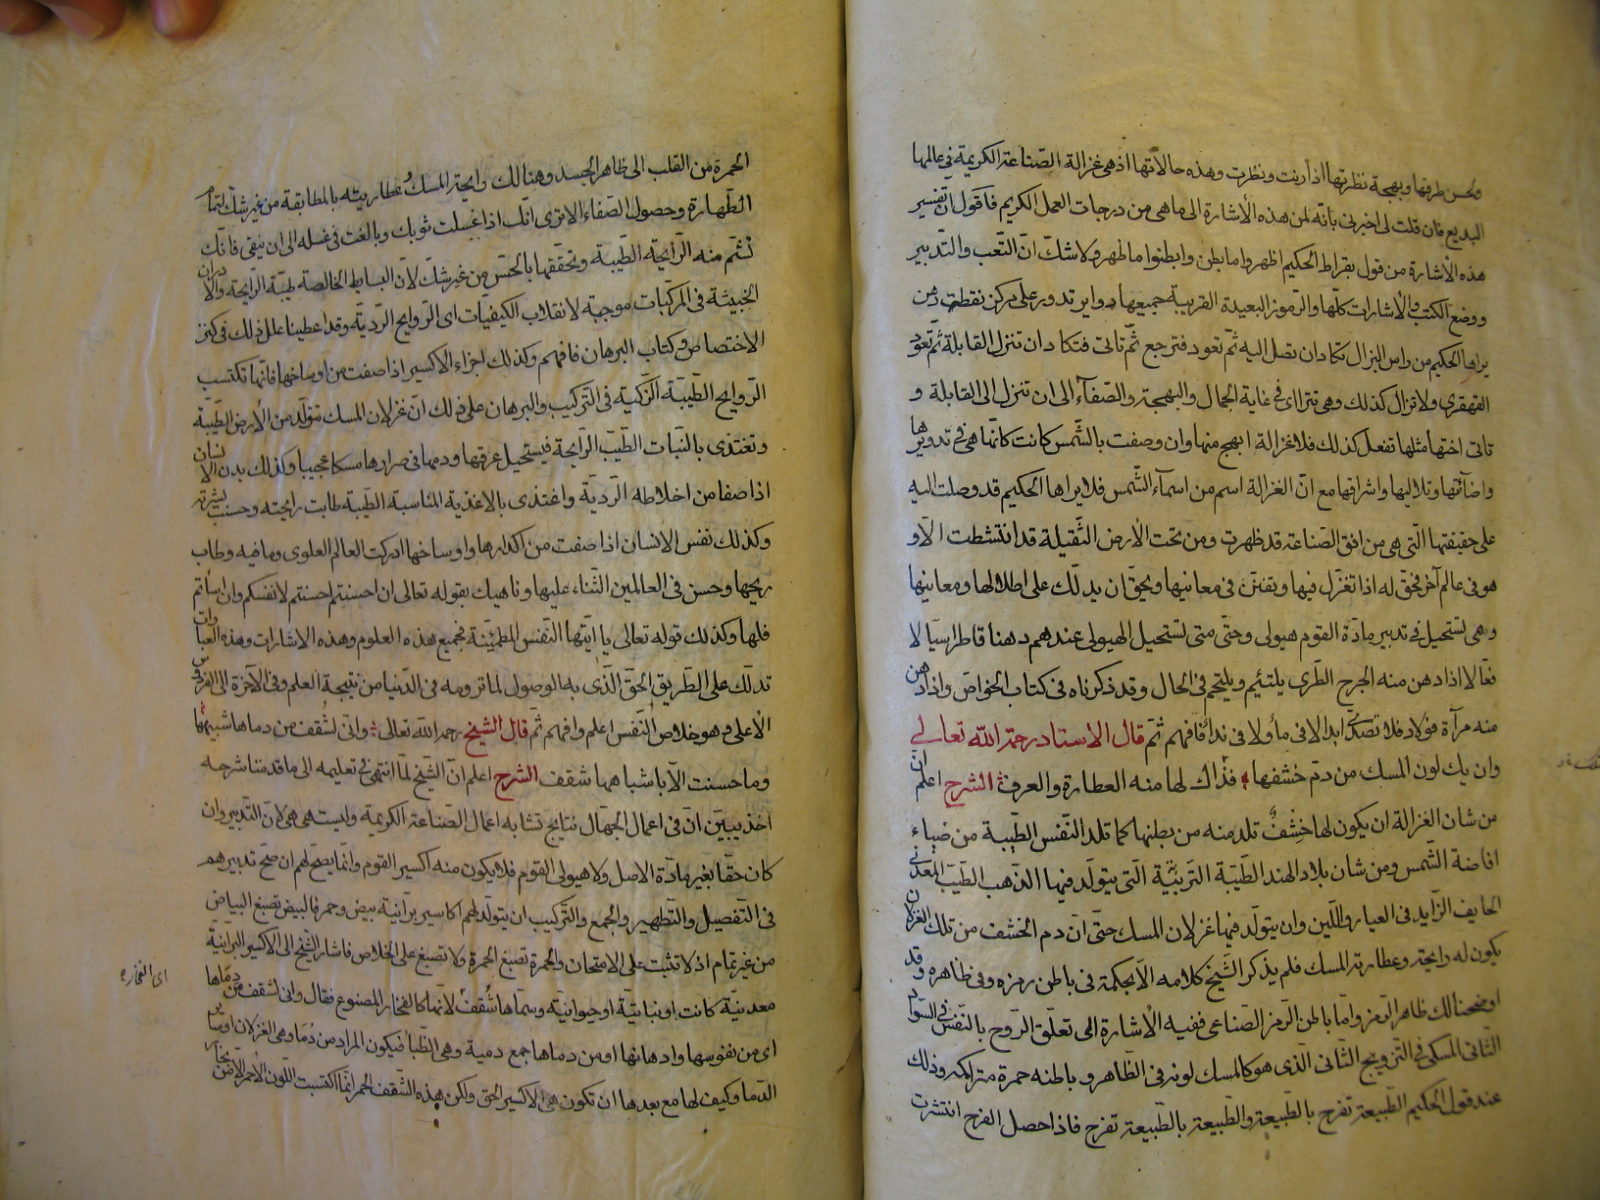 وحسن طرفها وبهجة نظرتها اذا رنت ونظرت وهذه حالاتها اذ هى غزالة الصناعة الكريمة فى عالمها
البديع فان قلت لى اخبرنى بانه لمن هذه الاشارة الى ما هى من درجات العمل الكريم فاقول ان تفسير
هذه الاشارة من قول بقراط الحكيم اظهروا ما بطن وابطنوا ما ظهر ولا شك ان التعب والتدبير
ووضع الكتب والاشارات كلها والرموز البعيدة القريبة جميعها دواير تدور على مركز نقطة
يراها الحكيم من راس البزال تكاد ان تصل اليه ثم تعود فترجع ثم تاتى فتكاد ان تنزل القابلة ثم تعود
القهقرى ولا تزال كذلك وهى تتراأى فى غاية الجمال والبهجة والصفآء الى ان تنزل الى القابلة و
تاتى اختها مثلها تفعل كذلك فلا غزالة ابهج منها وان وصفت بالشمس كانت كانها هى فى تدويرها
واضآئتها وتلاليها واشراقها مع ان الغزالة اسم من اسمآء الشمس فلا يراها الحكيم قد وصلت اليه
على حقيقتها التى هى من افق الصناعة قد ظهرت ومن تحت الارض الثقيلة قد انتشطت الا و
هو فى عالم آخر فحق له اذا تغزل فيها ويفتن فى معانيها ويحق ان يدلك على اطلالها ومعانيها
وهى تستحيل فى تدبير مادة القوم هيولى وحتى متى تستحيل الهيولى عندهم دهنا قاطرا سيالا
فعالا اذا دهن منه الجرح الطرى يلتئم ويلتحم فى الحال وقد ذكرناه فى كتاب الخواص واذا دهن
منه مرآة فولاد فلا تصدى ابدا لا فى ماء ولا فى ندا فافهم ثم قال الاستاد رحمة الله تعالى
وان يك لون المسك من دم خشفها فذاك لها منه العطارة والعرف الشرح اعلم ان
من شان الغزالة ان يكون لها خشف تلد منه من بطنها كما تلد النفس الطيبة من ضياء
افاضة الشمس ومن شان بلاد الهند الطيبة التربيّة التى يتولد فيها الذهب الطيب المعدنى
الحايف الزايد فى العيار واللين وان يتولد فيها غزلان المسك حتى ان دم الخشف من تلك الغزلان
يكون له رايحة وعطارة المسك فلم يذكر الشيخ كلامه الا بحكمة فى باطن رمزه وفى ظاهره وقد
اوضحنا لك ظاهر الرمز واما باطن الرمز الصناعى ففيه الاشارة الى تعلق الروح بالنفس فى السواد
الثانى المسكى فى التزويج الثانى الذى هو كالمسك لونه فى الظاهر وباطنه حمرة متراكمة وذلك
عند قول الحكيم الطبيعة تفرح بالطبيعة والطبيعة بالطبيعة تفرح فاذا حصل الفرح انتشرت
الحمرة من القلب الى ظاهر الجسد وهنالك رايحة المسك وعطاريته بالمطابقة من غير شك لتمام
الطهارة وحصول الصفاء الا ترى انك اذا غسلت ثوبك وبالغت فى غسله الى ان ينقى فانك
تشم منه الرايحة الطيبة وتحققها بالحس من غير شك لان البسايط الخالصة طيبة الرايحة والادران
الخبيثة فى المركبات موجبة لانقلاب الكيفيات اى الروايح الردية وقد اعطينا علل ذلك فى كنز
الاختصاص وكتاب البرهان فافهم وكذلك اجزاء الاكسير اذا صفت من اوساخها فانها تكتسب
الروايح الطيبة الزكية فى التركيب والبرهان على ذلك ان غزلان المسك تتولد من الارض الطيبة
وتغتذى بالنبات الطيب الرايحة فيستحيل عرقها ودمها فى صرارها مسكا عجيبا وكذلك بدن الانسان
اذا صفا من اخلاطه الردية واغتذى بالاغذية المناسبة الطيبة طابت رايحته وحسنت بشرته
وكذلك نفس الانسان اذا صفت من اكدارها واوساخها ادركت العالم العلوى وما فيه وطاب
ريحها وحسن فى العالمين الثناء عليها وناهيك بقوله تعالى ان احسنتم احسنتم لانفسكم وان اساتم
فلها وكذلك قوله تعالى يا ايتها النفس المطمئنة فجميع هذه العلوم وهذه الاشارات وهذه العبارات
تدلك على الطريق الحق الذى به الوصول لما ترومه فى الدنيا من نتيجة العلم وفى الآخرة الى الفردوس
الاعلى وهو خلاص النفس اعلم وافهم ثم قال الشيخ رحمه الله تعالى وانى لشقف من دماها شبيهها
وما حسنت الا باشباهها شقف الشرح اعلم ان الشيخ لما انتهى فى تعليمه الى ما قدمنا شرحه
اخذ يبين ان فى اعمال الجهال نتايج تشابه اعمال الصناعة الكريمة وليست هى هى لان التدبير وان
كان حقا بغير مادة الاصل ولا هيولى القوم فلا يكون منه اكسير القوم وانما يصح لهم ان صح تدبيرهم
فى التفصيل والتطهير والجمع والتركيب ان يتولد لهم اكاسير برانية بيض وحمر فالبيض تصبغ البياض
من غير تمام اذ لا تثبت على الامتحان والحمرة تصبغ الحمرة ولا تصبغ على الخلاص فاشار الشيخ الى الاكسير البرانية
معدنية كانت او نباتية او حيوانية وسماها شقف لانها كالفخار المصنوع فقال وانى لشقف من دماها
اى الفخاره
اى من نفوسها وادهانها او من دماها جمع دمية وهى الظبأ فيكون المراد من دماوهى الغزلان
الدما وكيف لها مع بعدها ان تكون هى الاكسير الحق ولكن هذه الشقف الحمر انما اكتسبت اللون الاحمر